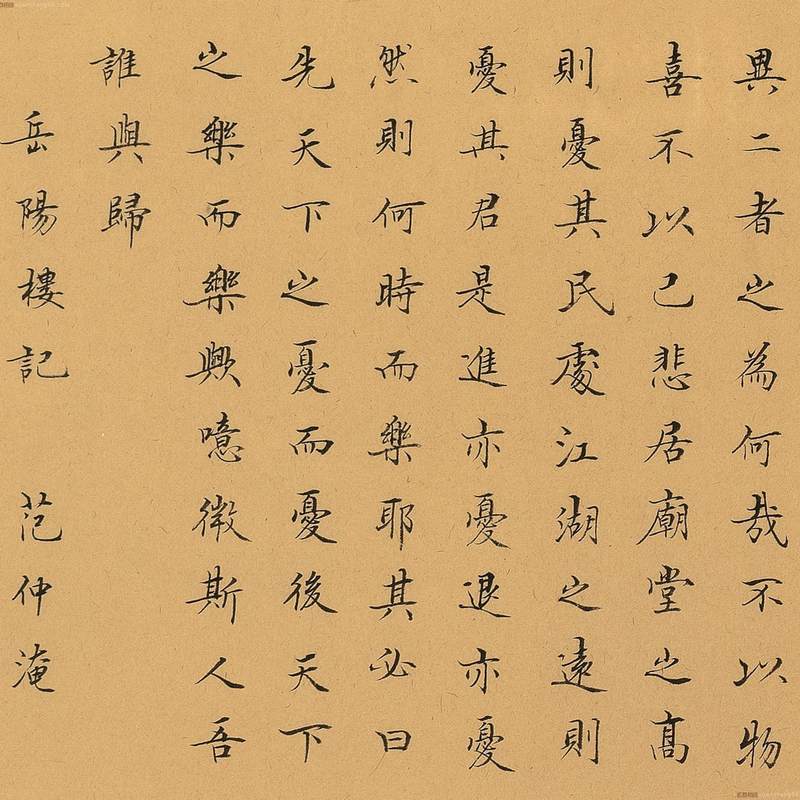 異二者之為何哉不以物
喜不以己悲居廟堂之髙
則憂其民處江湖之遠則
憂其君是進亦憂退亦憂
然則何時而樂耶其必曰
先天下之憂而憂後天下
之樂而樂歟噫微斯人吾
誰與歸
岳陽樓記 范仲淹